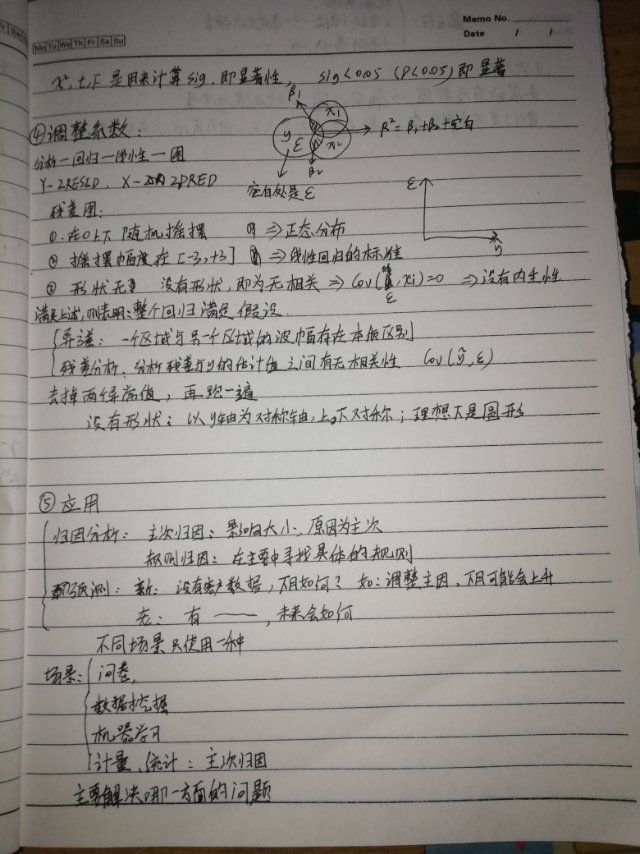 Memo No.
Mo Tu We Th Fr Sa Su
Date / /
x², t, F 是用来计算sig, 即显著性, sig<0.05 (P<0.05) 即显著
④调整系数:
β₁ x₁
y ε x₂ R²=β₁+β₂+空白
β₂
空白处是ε
分析—回归—线性—图
Y-ZRESID, X-ZPRED
ε
ŷ
残差图:
①. 在0上下随机摇摆 ⇒正态分布
② 摇摆幅度在[-3,+3] ⇒线性回归的标准性
③ 形状 没有形状, 即为无相关 ⇒Cov(ε, xi)=0 ⇒没有内生性
满足上述, 则表明: 整个回归满足假设.
异方差: 一个区域与另一个区域的波幅存在本质区别
残差分析、分析残差与y的估计值之间有无相关性 Cov(ŷ, ε)
去掉两个异常值, 再跑一遍
没有形状: 以y轴为对称轴, 上下对称; 理想下是圆形
⑤ 应用
归因分析: 主次归因: 影响大小, 原因为主次
规则归因: 在主要中寻找具体的规则
预测: 新: 没有客户数据, 如何? 如: 调整主因, 可能会上升
老: 有 ——, 未来会如何
不同场景只使用一种
场景: 问卷,
数据挖掘
机器学习
计量、统计: 主次归因
主要解决哪一方面的问题